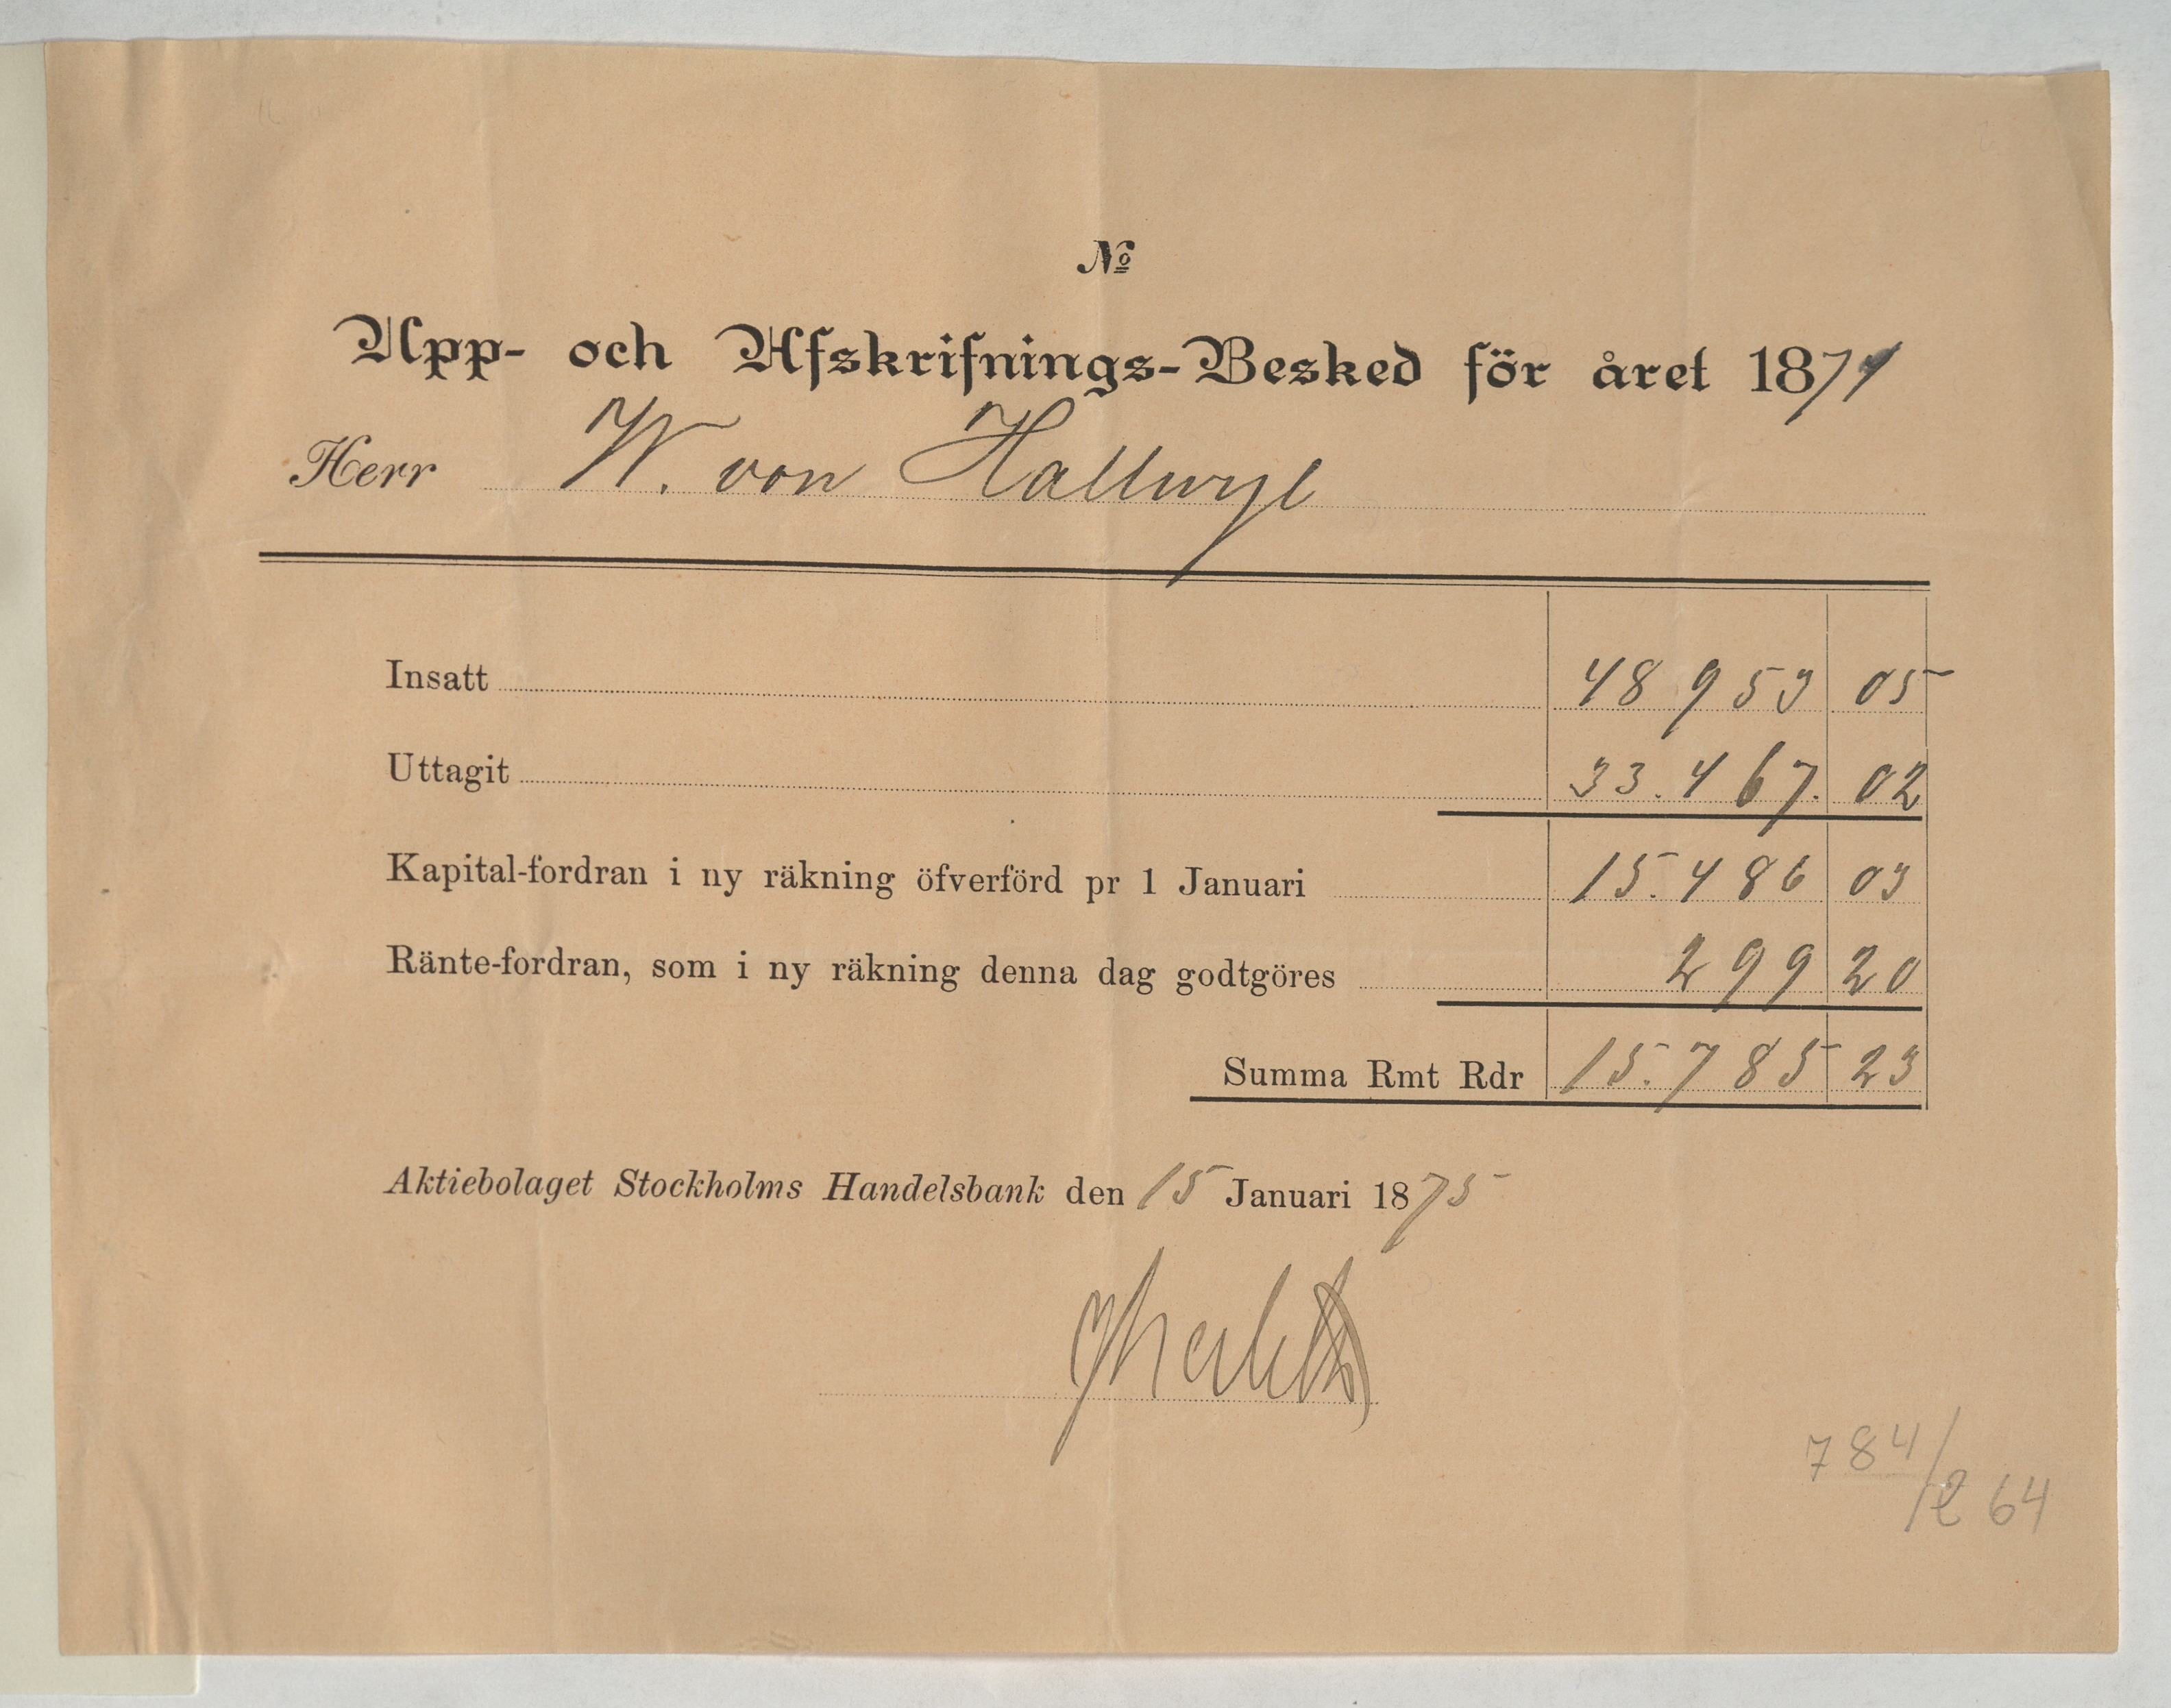 №
Upp- och Afskrifnings-Besked för året 1874
Herr W. von Hallwyl
Insatt 48 953 05
Uttagit 33.467. 02
Kapital-fordran i ny räkning öfverförd pr 1 Januari 15.486 03
Ränte-fordran, som i ny räkning denna dag godtgöres 299 20
Summa Rmt Rdr 15.785 23
Aktiebolaget Stockholms Handelsbank den 15 Januari 1875
784/e 64